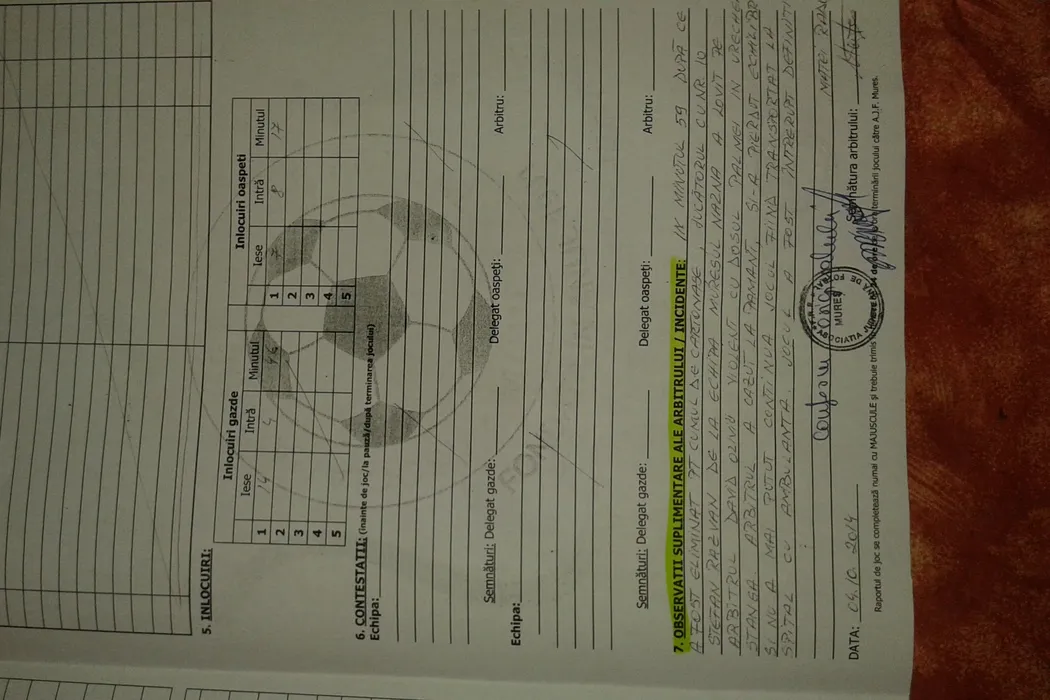 5. INLOCUIRI:
Inlocuiri gazde
Inlocuiri oaspeti
Iese Intră Minutul
Iese Intră Minutul
1 14 4 46
1 7 8 17
2 2
3 3
4 4
5 5
6. CONTESTATII: (inainte de joc/la pauză/după terminarea jocului)
Echipa:
Semnături: Delegat gazde: Delegat oaspeţi: Arbitru:
Echipa:
Semnături: Delegat gazde: Delegat oaspeţi: Arbitru:
7. OBSERVATII SUPLIMENTARE ALE ARBITRULUI / INCIDENTE: IN MINUTUL 59 DUPĂ CE
A FOST ELIMINAT PT CUMUL DE CARTONASE, JUCĂTORUL CU NR. 10
STEFAN RAZVAN DE LA ECHIPA MURESUL NAZNA A LOVIT PE
ARBITRUL DAVID VIOLENT CU DOSUL PALMEI IN URECHEA
STANGA. ARBITRUL A CAZUT LA PAMANT, SI-A PIERDUT ECHILIBR
SI NU A MAI PUTUT CONTINUA JOCUL FIIND TRANSPORTAT LA
SPITAL CU AMBULANTA. JOCUL A FOST INTRERUPT DEFINITI
Conform originalului
MATEI
ASOCIATIA
MURES
DATA: 04.10.2014 Semnătura arbitrului:
Raportul de joc se completează numai cu MAJUSCULE şi trebuie trimis terminării jocului către A.J.F. Mures.